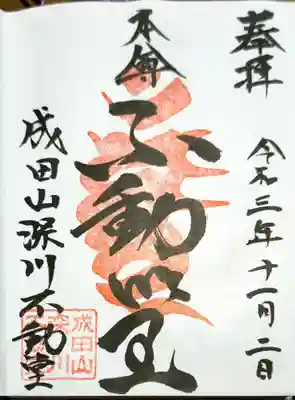 奉拝
令和三年十一月二日
本尊
不動明王
成田山深川不動堂
成田山
深川